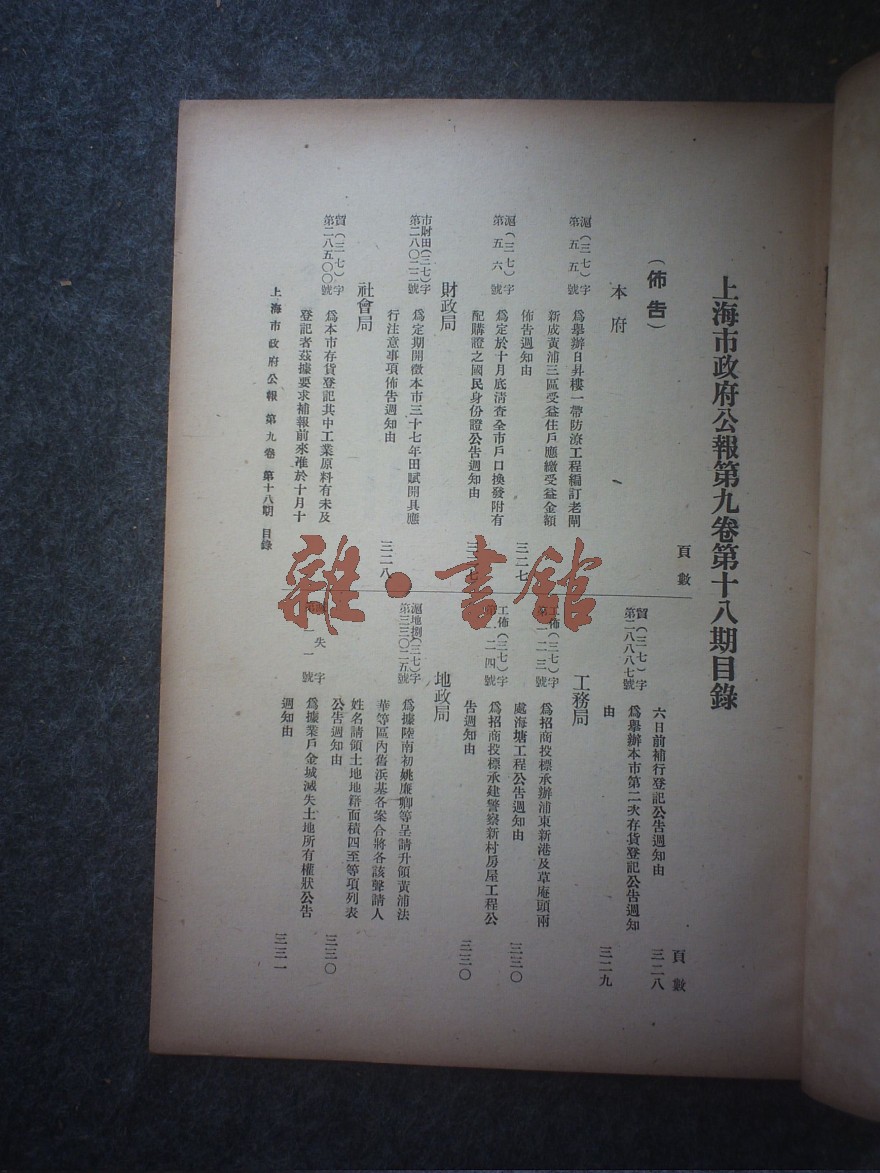 上海市政府公報第九卷第十八期目錄
頁數
(佈告)
本府
滬(三七)字
第五五號
爲舉辦日昇樓一帶防潦工程編訂老閘
新成黃浦三區受益住戶應繳受益金額
佈告週知由
三二七
滬(三七)字
第五六號
爲定於十月底清查全市戶口換發附有
配購證之國民身份證公告週知由
財政局
市財田(三七)字
第二八〇二二號
爲定期開徵本市三十七年田賦開具應
行注意事項佈告週知由
三二八
社會局
貿(三七)字
第二八五〇〇號
爲本市存貨登記其中工業原料有未及
登記者茲據要求補報前來准於十月十
頁數
六日前補行登記公告週知由
三二八
貿(三七)字
第二八八八七號
爲舉辦本市第二次存貨登記公告週知
由
三二九
工務局
工佈(三七)字
第一二三號
爲招商投標承辦浦東新港及草庵頭兩
處海塘工程公告週知由
三三〇
工佈(三七)字
第一二四號
爲招商投標承建警察新村房屋工程公
告週知由
三三〇
地政局
滬地劃(三七)字
第三三〇二五號
爲據陸南初姚廉卿等呈請升領黃浦法
華等區內舊浜基各案合將各該聲請人
姓名請領土地地籍面積四至等項列表
公告週知由
三三〇
失字
一號
爲據業戶金城滅失土地所有權狀公告
週知由
三三一
上海市政府公報 第九卷 第十八期 目錄
雜·書館